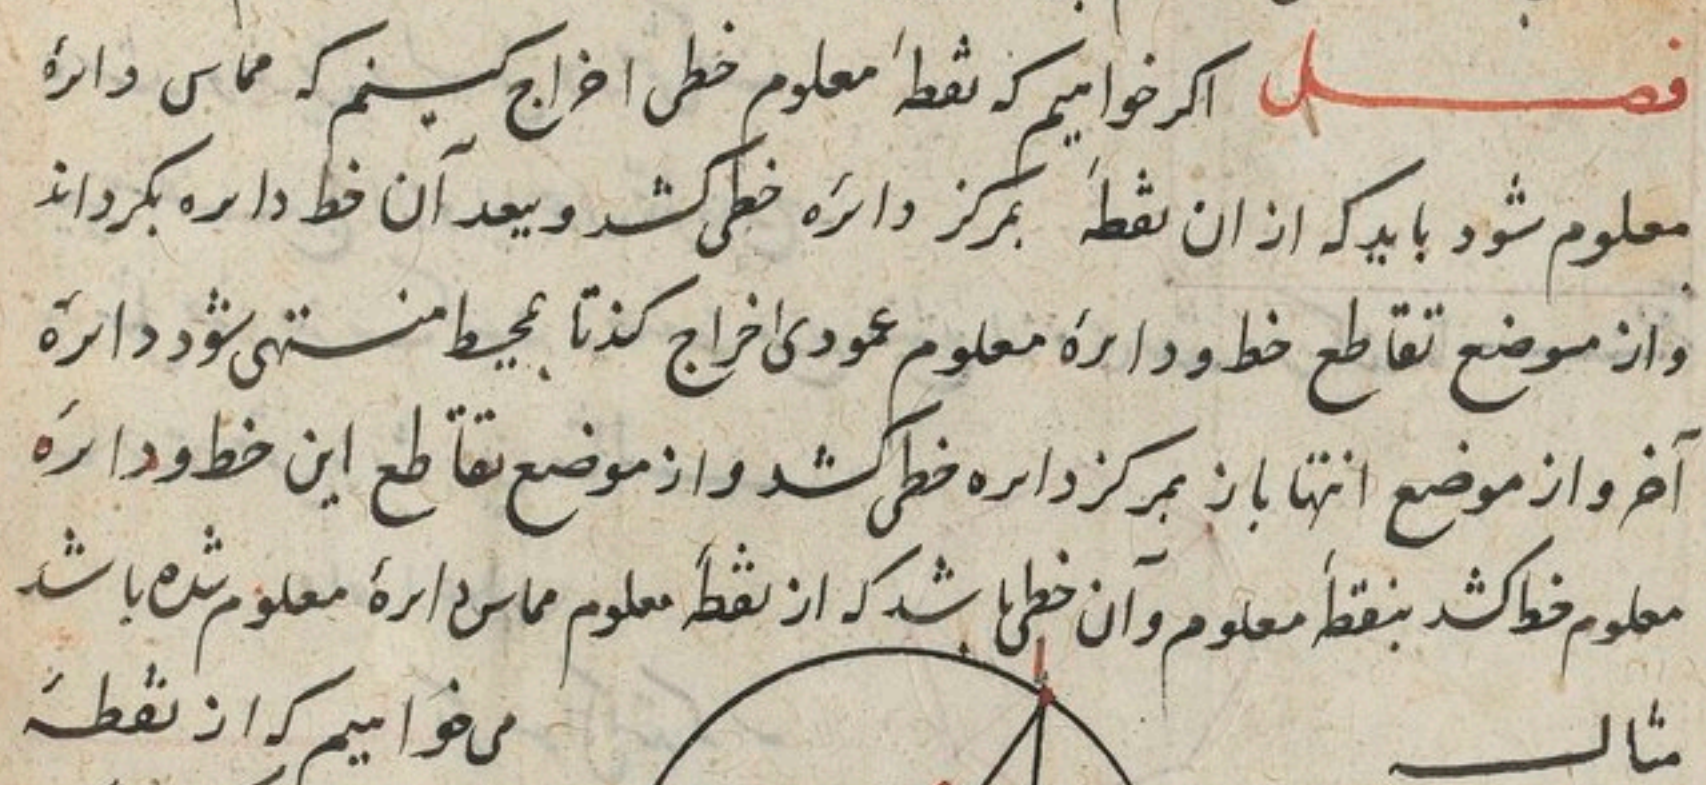 فصل اکر خواهیم که نقطهٔ معلوم خطی اخراج کنیم که مماس دایرهٔ
معلوم شود باید که از ان نقطهٔ بمرکز دائره خطی کشد و ببعد آن خط دایره بکرداند
و از موضع تقاطع خط و دایرهٔ معلوم عمودی اخراج کند تا بمحیط منتهی شود دایرهٔ
آخر و از موضع انتها باز بمرکز دایره خطی کشد و از موضع تقاطع این خط و دایرهٔ
معلوم خط کشد بنقطهٔ معلوم و آن خطی باشد که از نقطهٔ معلوم مماس دایرهٔ معلوم شده باشد
مثال می خواهیم که از نقطهٔ
ا